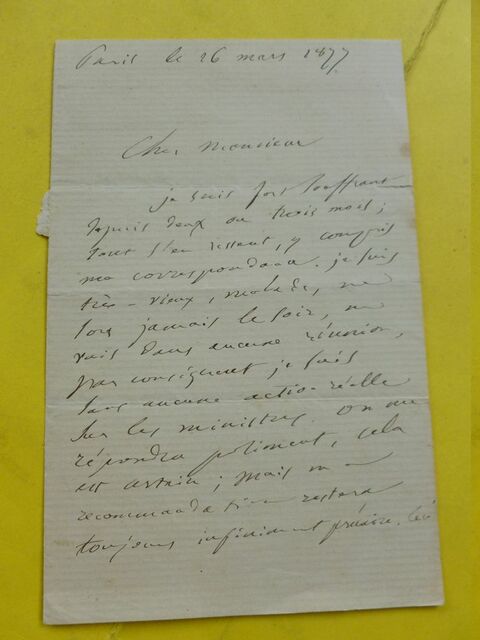 Paris le 26 mars 1877
Cher Monsieur
je suis fort souffrant
depuis deux ou trois mois ;
tout s'en ressent, y compris
ma correspondance. je suis
très-vieux, malade, ne
sors jamais le soir, ne
vais dans aucune réunion,
par conséquent je suis
sans aucune action réelle
sur les ministres. On me
répondra poliment, cela
est certain ; mais ma
recommandation restera
toujours infiniment précaire.